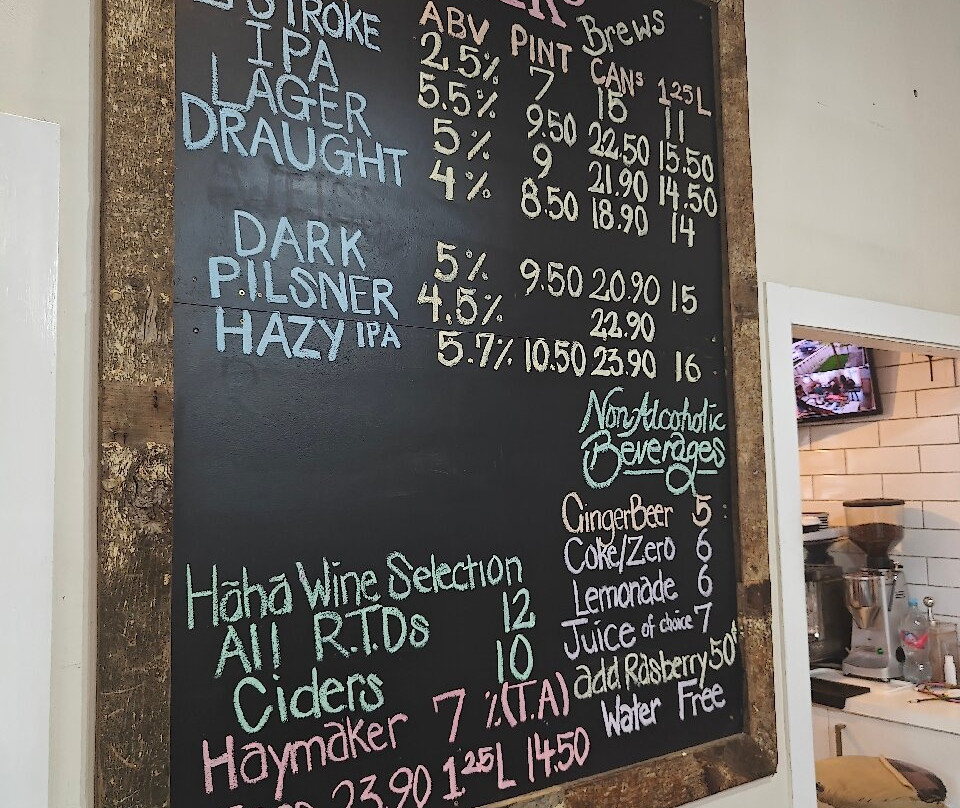 Brews
ABV PINT CANs 1.25L
STROKE 2.5% 7 15 11
IPA 5.5% 9.50 22.50 15.50
LAGER 5% 9 21.90 14.50
DRAUGHT 4% 8.50 18.90 14
DARK 5% 9.50 20.90 15
PILSNER 4.5% 22.90
HAZY IPA 5.7% 10.50 23.90 16
Non Alcoholic
Beverages
GingerBeer 5
Coke/Zero 6
Lemonade 6
Juice of choice 7
add Rasberry 50¢
Water Free
Hāhā Wine Selection
All R.T.Ds 12
Ciders 10
Haymaker 7 % (T.A)
23.90 1.25L 14.50